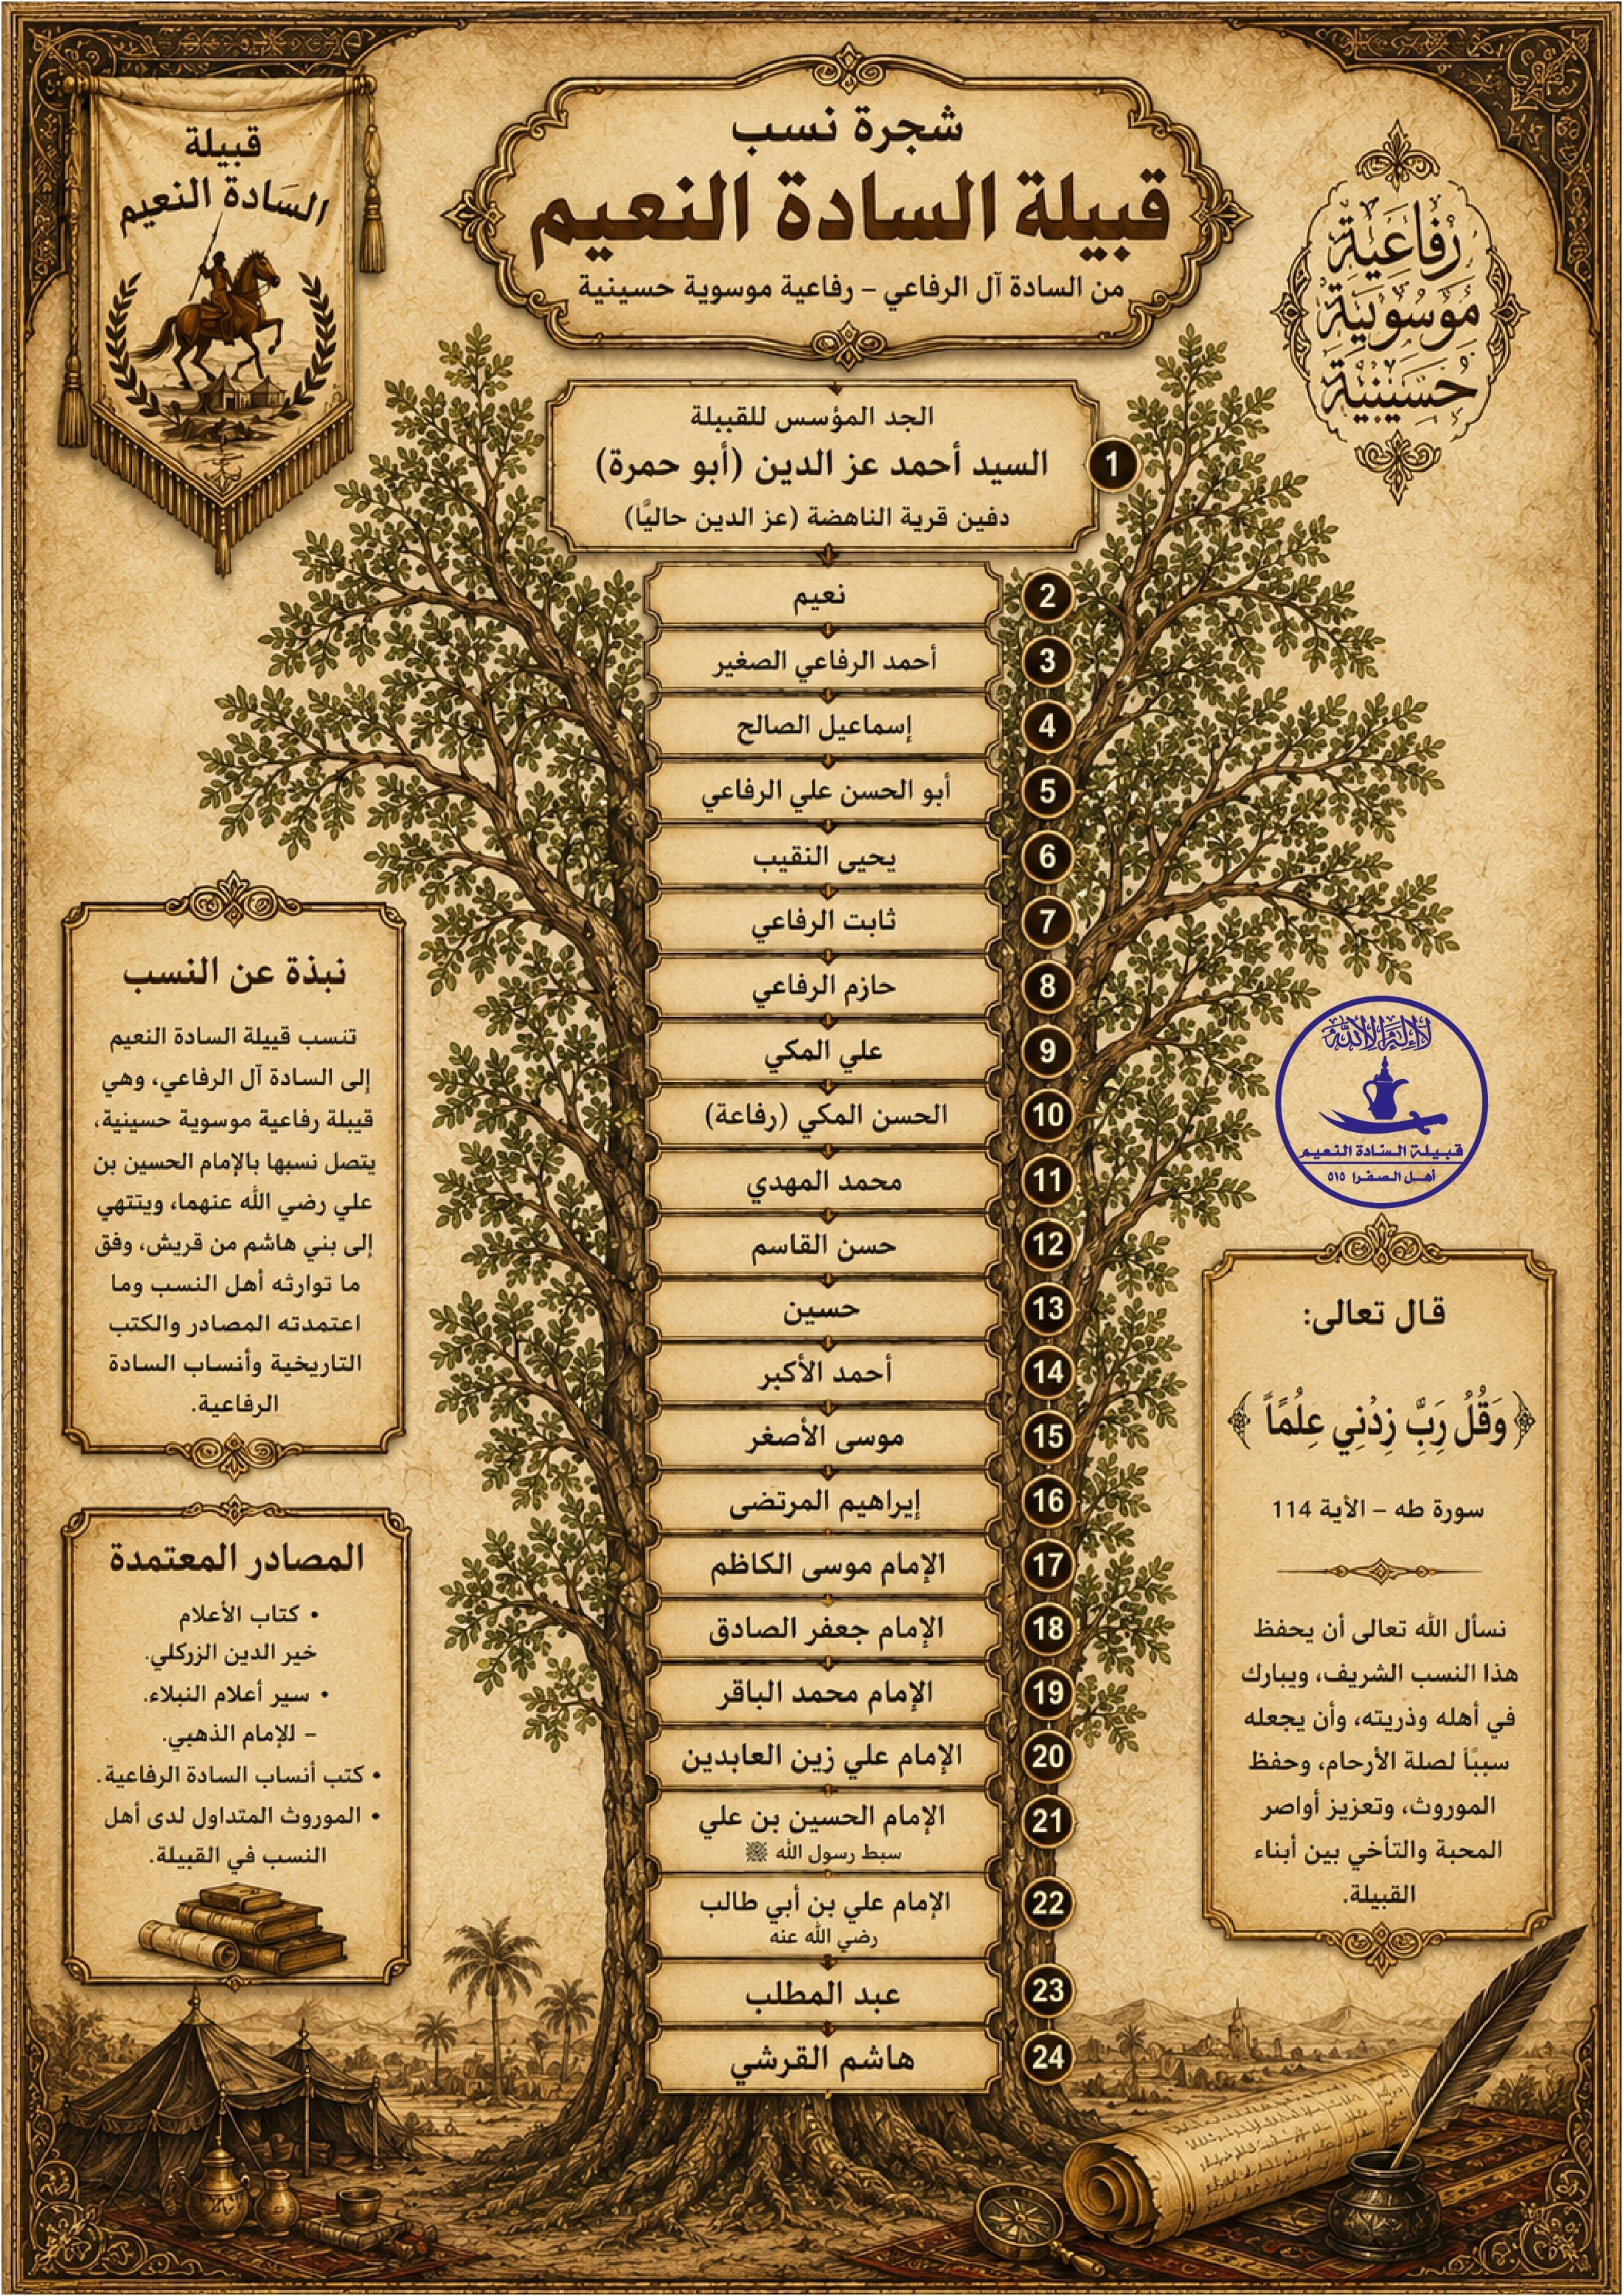 قبيلة
السادة النعيم
شجرة نسب
قبيلة السادة النعيم
من السادة آل الرفاعي – رفاعية موسوية حسينية
رفاعية
موسوية
حسينية
الجد المؤسس للقبيلة
السيد أحمد عز الدين (أبو حمرة)
1
دفين قرية الناهضة (عز الدين حاليًا)
نعيم
2
أحمد الرفاعي الصغير
3
إسماعيل الصالح
4
أبو الحسن علي الرفاعي
5
يحيى النقيب
6
ثابت الرفاعي
7
حازم الرفاعي
8
علي المكي
9
الحسن المكي (رفاعة)
10
محمد المهدي
11
حسن القاسم
12
حسين
13
أحمد الأكبر
14
موسى الأصغر
15
إبراهيم المرتضى
16
الإمام موسى الكاظم
17
الإمام جعفر الصادق
18
الإمام محمد الباقر
19
الإمام علي زين العابدين
20
الإمام الحسين بن علي
21
سبط رسول الله ﷺ
الإمام علي بن أبي طالب
22
رضي الله عنه
عبد المطلب
23
هاشم القرشي
24
نبذة عن النسب
تنسب قبيلة السادة النعيم
إلى السادة آل الرفاعي، وهي
قبيلة رفاعية موسوية حسينية،
يتصل نسبها بالإمام الحسين بن
علي رضي الله عنهما، وينتهي
إلى بني هاشم من قريش، وفق
ما توارثه أهل النسب وما
اعتمدته المصادر والكتب
التاريخية وأنساب السادة
الرفاعية.
المصادر المعتمدة
• كتاب الأعلام
خير الدين الزركلي.
• سير أعلام النبلاء.
– للإمام الذهبي.
• كتب أنساب السادة الرفاعية.
• الموروث المتداول لدى أهل
النسب في القبيلة.
لا إله إلا الله
قبيلة السادة النعيم
أهل الصفرا ٥١٥
قال تعالى:
﴿وَقُلْ رَبِّ زِدْنِي عِلْمًا﴾
سورة طه – الأية 114
نسأل الله تعالى أن يحفظ
هذا النسب الشريف، ويبارك
في أهله وذريته، وأن يجعله
سببًا لصلة الأرحام، وحفظ
الموروث، وتعزيز أواصر
المحبة والتأخي بين أبناء
القبيلة.